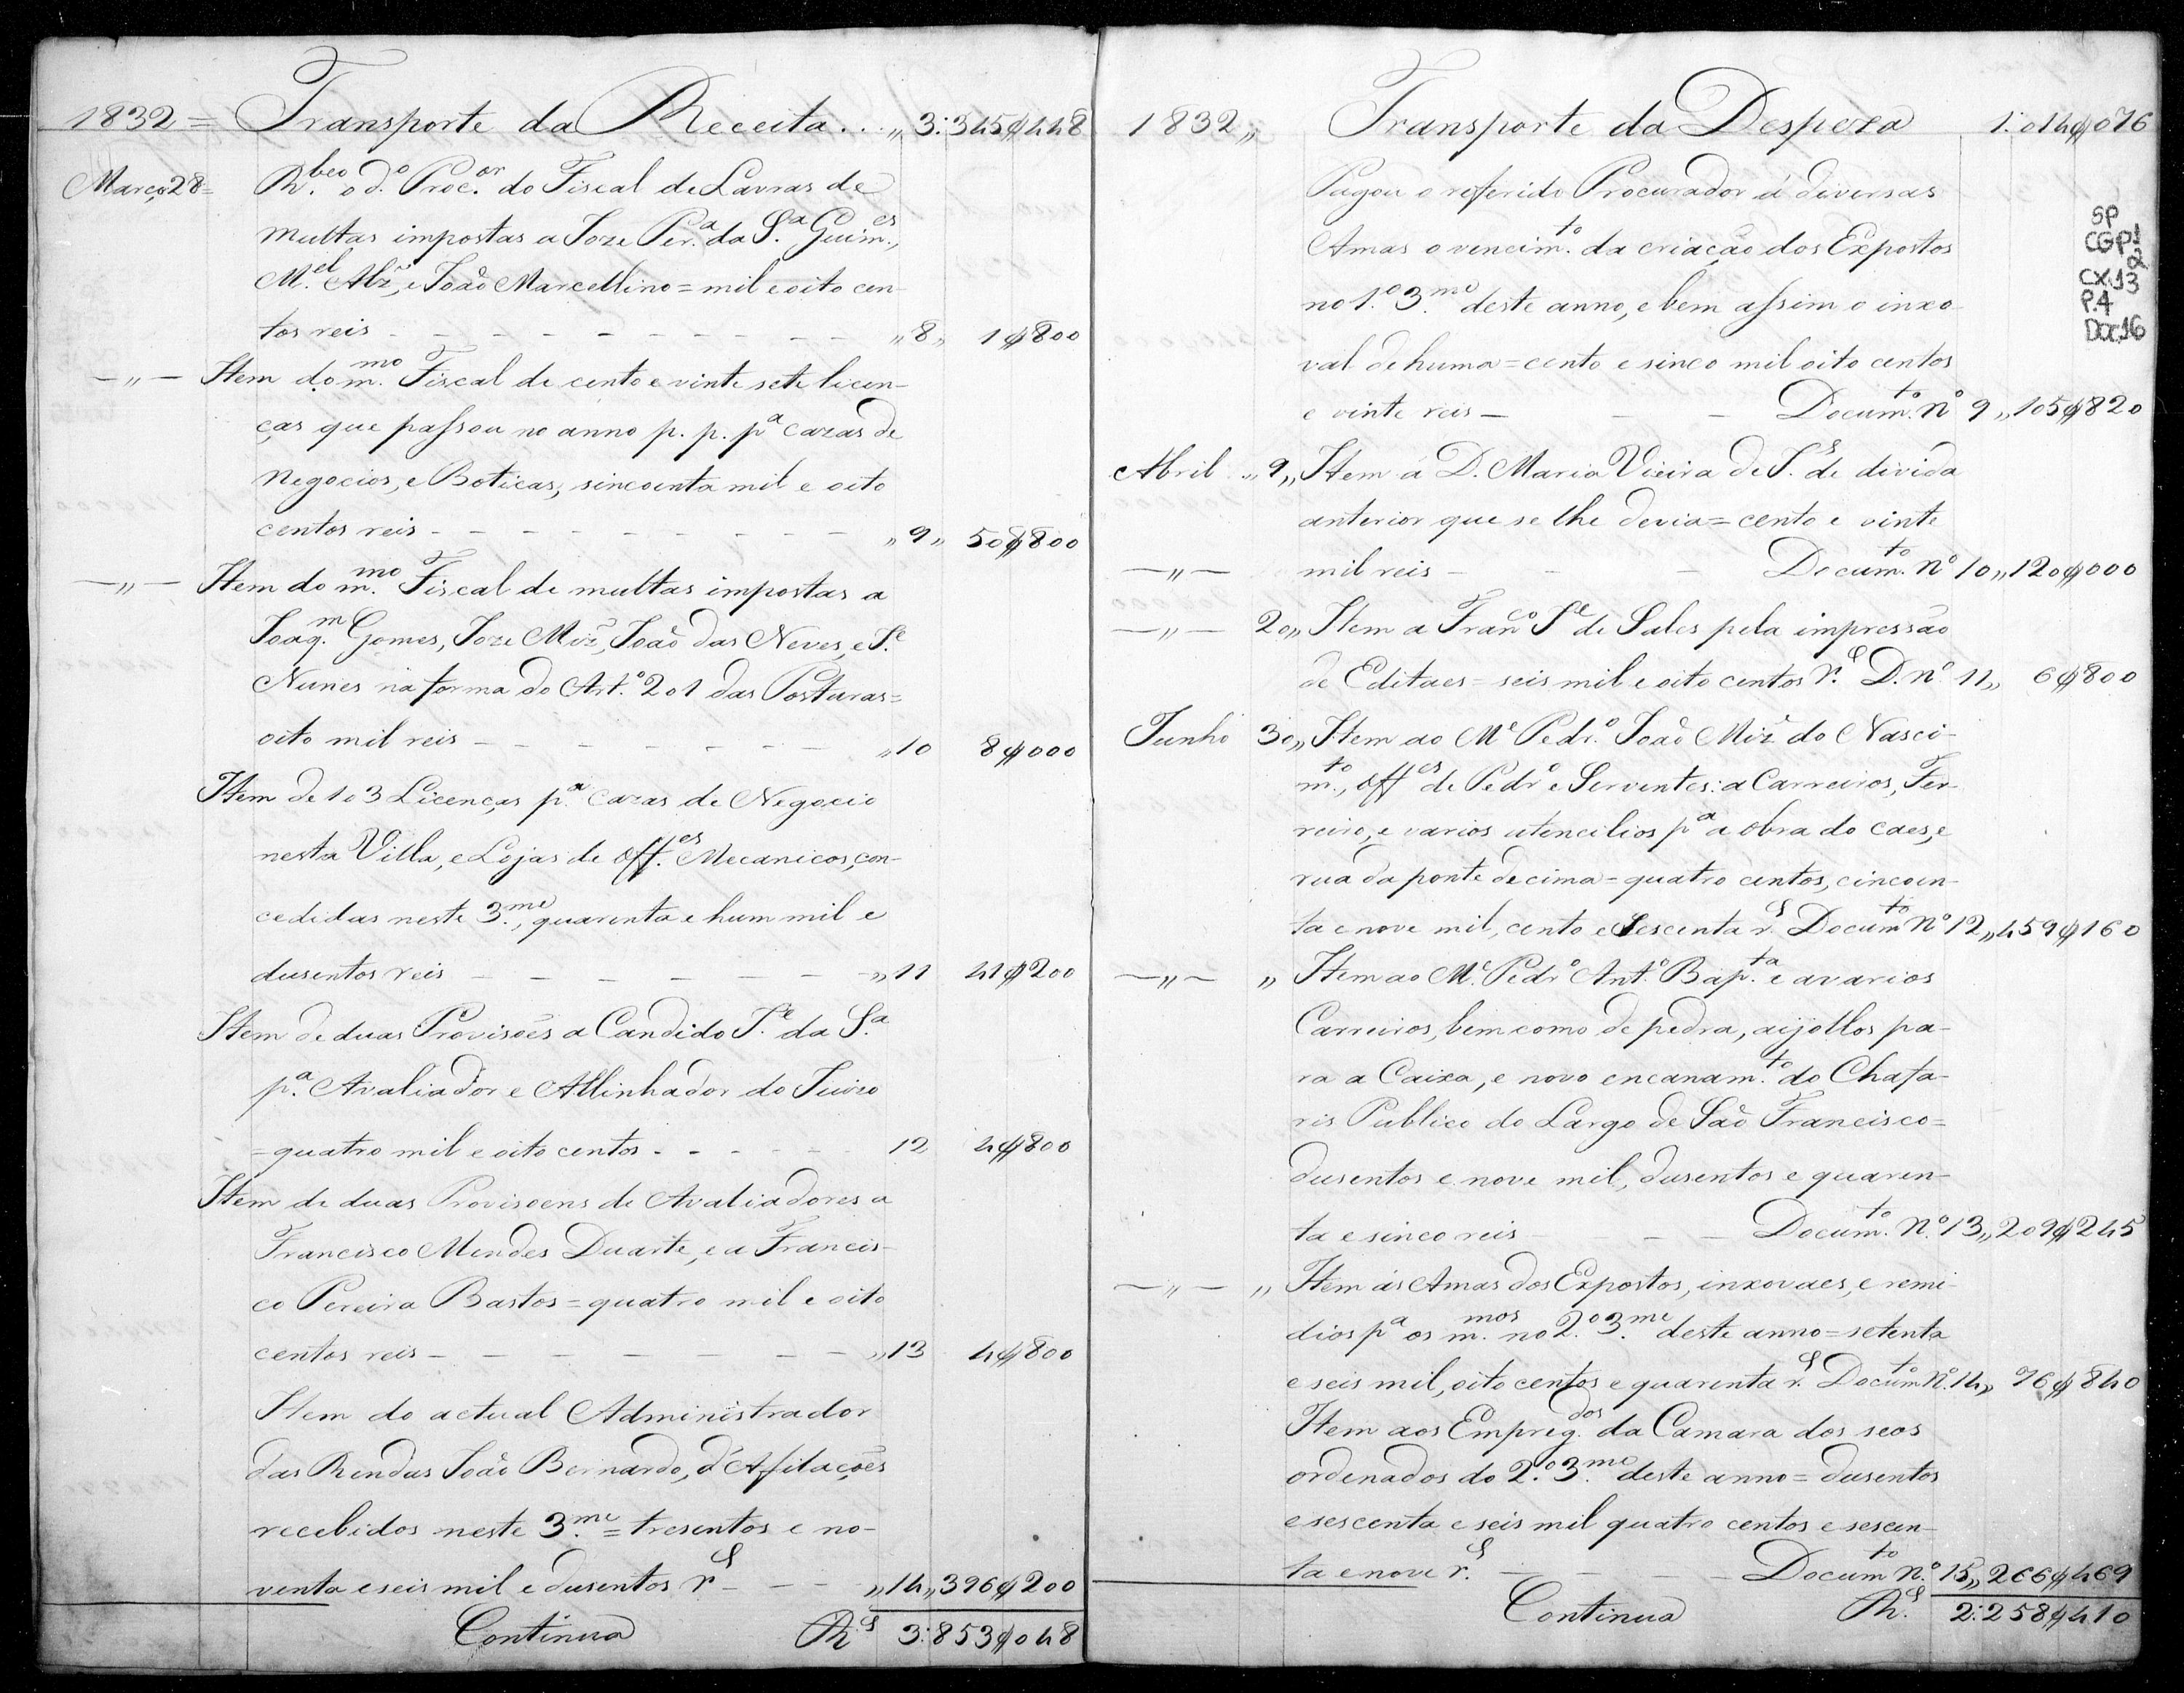 1832 = Transporte da Receita .. „ 3:345$448
Março 28 = R.beo o d.o Proc.or do Fiscal de Lavras de
multas impostas a Joze Per.a da S.a Guim.es,
M.el Alz̃, e João Marcellino = mil e oito cen-
tos reis - - - - - - - - - „ 8 „ 1$800
— „ — Item do m.mo Fiscal de cento e vinte sete licen-
ças que passou no anno p. p. p.a cazas de
Negocios, e Boticas, sincoenta mil e oito
centos reis - - - - - - - - - „ 9 „ 50$800
— „ — Item do m.mo Fiscal de multas impostas a
Joaq.m Gomes, Joze Miz̃, João das Neves, e J.e
Nunes na forma do Art.o 201 das Posturas =
oito mil reis - - - - - - - - „ 10 8$000
Item de 103 Licenças p.a cazas de Negocio
nesta Villa, e Lojas de Off.es Mecanicos, con-
cedidas neste 3.me, quarenta e hum mil e
dusentos reis - - - - - - - „ 11 41$200
Item de duas Provisões a Candido J.e da S.a
p.a Avaliador e Allinhador do Juizo
= quatro mil e oito centos - - - - - 12 4$800
Item de duas Provisoens de Avaliadores a
Francisco Mendes Duarte, e a Francis-
co Pereira Bastos = quatro mil e oito
centos reis - - - - - - - - „ 13 4$800
Item do actual Administrador
das Rendas João Bernardo, d'Afilações
recebidos neste 3.me = tresentos e no-
venta e seis mil e dusentos r.s - - - „ 14 „ 396$200
Continua R.s 3:853$048
1832 „ Transporte da Despeza 1:014$076
Pagou o referido Procurador á diversas
Amas o vencim.to da criação dos Expostos
no 1.o 3.me deste anno, e bem assim o inxo-
val de huma = cento e sinco mil oito centos
e vinte reis — - - Docum.to N.o 9 „ 105$820
Abril „ 9 „ Item á D. Maria Vieira de J.s de divida
anterior que se lhe devia = cento e vinte
— „ — mil reis - - - Docum.to N.o 10 „ 120$000
— „ — 20 „ Item a Fran.co J.e de Sales pela impressão
de Editaes = seis mil e oito centos r.s D. n.o 11 „ 6$800
Junho 30 „ Item ao M.e Pedr.o João Miz̃ do Nasci-
m.to, Off.es de Pedr.o e Serventes: a Carreiros, Fer-
reiro, e varios utencilios p.a a obra do caes, e
rua da ponte de cima = quatro centos, cincoen-
ta e nove mil, cento e sescenta r.s Docum.to N.o 12 „ 459$160
— „ — „ Item ao M.e Pedr.o Ant.o Bap.ta e a varios
Carreiros, bem como de pedra, aijollos pa-
ra a Caixa, e novo encanam.to do Chafa-
ris Publico do Largo de São Francisco =
dusentos e nove mil, dusentos e quaren-
ta e sinco reis - - - Docum.to N.o 13 „ 209$245
— „ — „ Item ás Amas dos Expostos, inxovaes, e remi-
dios p.a os m.mos no 2.o 3.me deste anno = setenta
e seis mil, oito centos e quarenta r.s Docum.to N.o 14 „ 76$840
Item aos Empreg.dos da Camara dos seos
ordenados do 2.o 3.me deste anno = dusentos
e sescenta e seis mil quatro centos e sescen-
ta e nove r.s - - - Docum.to N.o 15 „ 266$469
Continua R.s 2:258$410
SP
CGP1
2
CX.13
P.4
Doc.16